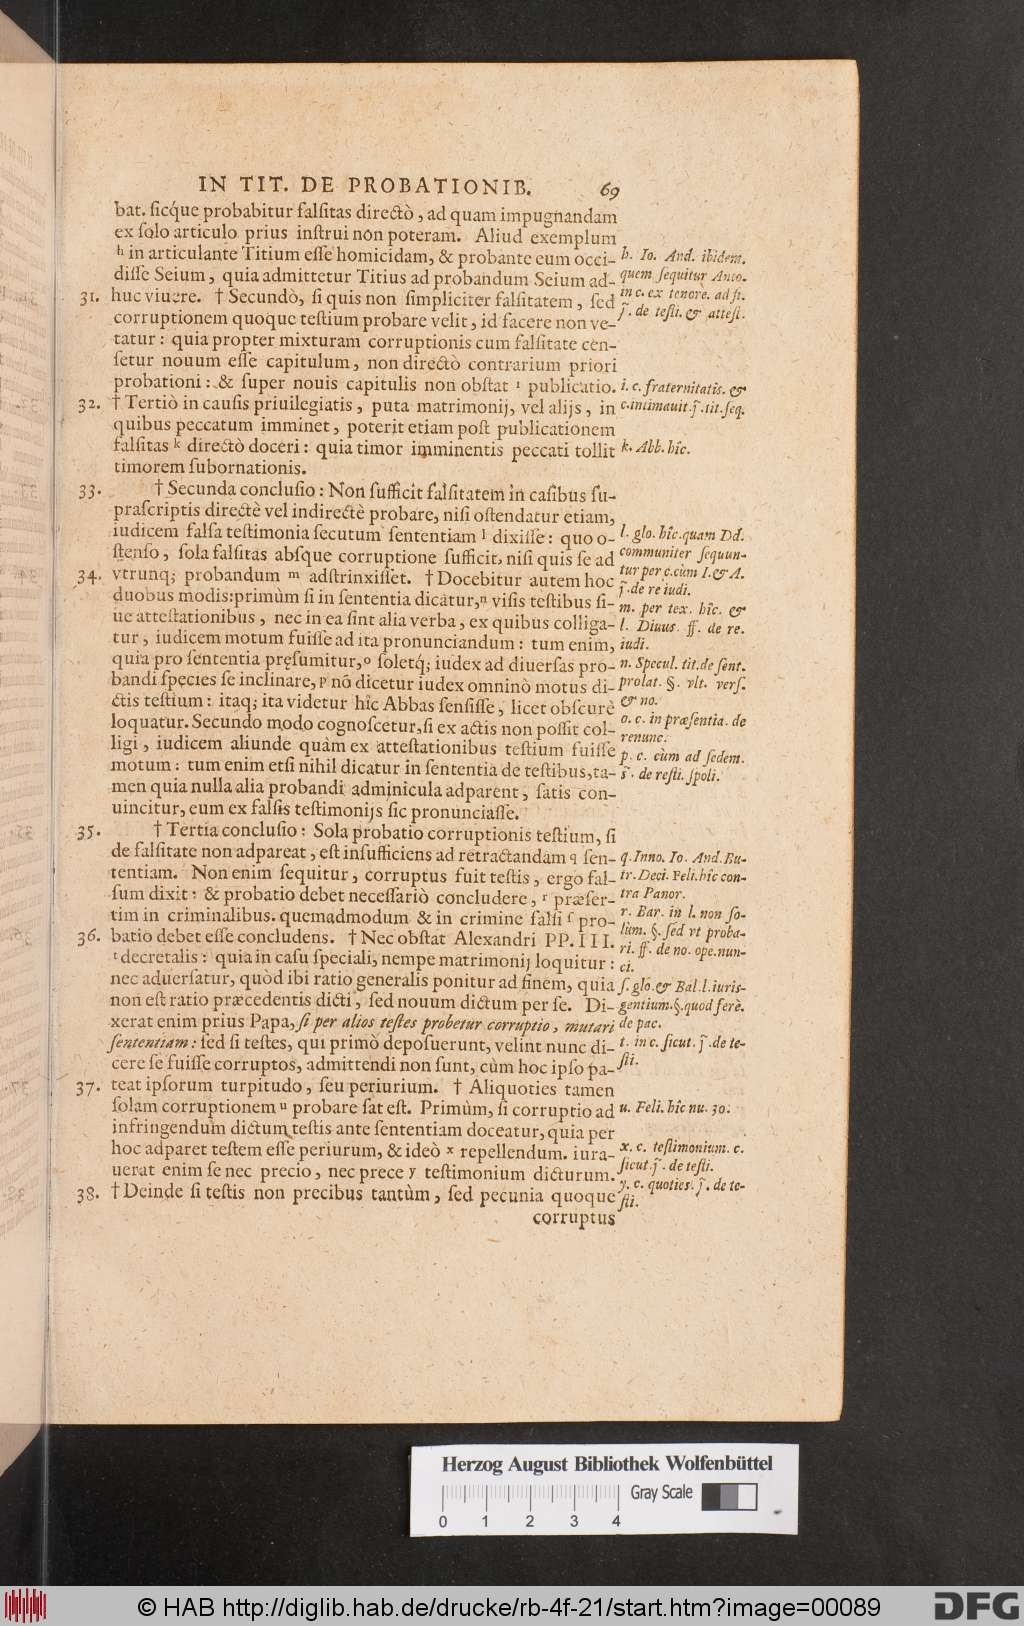 IN TIT. DE PROBATIONIB. 69
bat. ſicq́ue probabitur falſitas directò, ad quam impugnandam
ex ſolo articulo prius inſtrui non poteram. Aliud exemplum
h in articulante Titium eſſe homicidam, & probante eum occi-
diſſe Seium, quia admittetur Titius ad probandum Seium ad-
31. huc viuere. † Secundò, ſi quis non ſimpliciter falſitatem, ſed
corruptionem quoque teſtium probare velit, id facere non ve-
tatur: quia propter mixturam corruptionis cum falſitate cen-
ſetur nouum eſſe capitulum, non directò contrarium priori
probationi: & ſuper nouis capitulis non obſtat i publicatio.
32. † Tertiò in cauſis priuilegiatis, puta matrimonij, vel alijs, in
quibus peccatum imminet, poterit etiam poſt publicationem
falſitas k directò doceri: quia timor imminentis peccati tollit
timorem ſubornationis.
33. † Secunda concluſio: Non ſufficit falſitatem in caſibus ſu-
praſcriptis directè vel indirectè probare, niſi oſtendatur etiam,
iudicem falſa teſtimonia ſecutum ſententiam l dixiſſe: quo o-
ſtenſo, ſola falſitas abſque corruptione ſufficit, niſi quis ſe ad
34. vtrunq; probandum m adſtrinxiſſet. † Docebitur autem hoc
duobus modis: primùm ſi in ſententia dicatur, n viſis teſtibus ſi-
ue atteſtationibus, nec in ea ſint alia verba, ex quibus colliga-
tur, iudicem motum fuiſſe ad ita pronunciandum: tum enim,
quia pro ſententia pręſumitur, o ſoletq́; iudex ad diuerſas pro-
bandi ſpecies ſe inclinare, p nõ dicetur iudex omninò motus di-
ctis teſtium: itaq; ita videtur hîc Abbas ſenſiſſe, licet obſcurè
loquatur. Secundo modo cognoſcetur, ſi ex actis non poſſit col-
ligi, iudicem aliunde quàm ex atteſtationibus teſtium fuiſſe
motum: tum enim etſi nihil dicatur in ſententia de teſtibus, ta-
men quia nulla alia probandi adminicula adparent, ſatis con-
uincitur, eum ex falſis teſtimonijs ſic pronunciaſſe.
35. † Tertia concluſio: Sola probatio corruptionis teſtium, ſi
de falſitate non adpareat, eſt inſufficiens ad retractandam q ſen-
tentiam. Non enim ſequitur, corruptus fuit teſtis, ergo fal-
ſum dixit: & probatio debet neceſſariò concludere, r præſer-
tim in criminalibus. quemadmodum & in crimine falſi ſ pro-
36. batio debet eſſe concludens. † Nec obſtat Alexandri PP. III.
t decretalis: quia in caſu ſpeciali, nempe matrimonij loquitur:
nec aduerſatur, quòd ibi ratio generalis ponitur ad finem, quia
non eſt ratio præcedentis dicti, ſed nouum dictum per ſe. Di-
xerat enim prius Papa, ſi per alios teſtes probetur corruptio, mutari
ſententiam: ſed ſi teſtes, qui primò depoſuerunt, velint nunc di-
cere ſe fuiſſe corruptos, admittendi non ſunt, cùm hoc ipſo pa-
37. teat ipſorum turpitudo, ſeu periurium. † Aliquoties tamen
ſolam corruptionem u probare ſat eſt. Primùm, ſi corruptio ad
infringendum dictum teſtis ante ſententiam doceatur, quia per
hoc adparet teſtem eſſe periurum, & ideò x repellendum. iura-
uerat enim ſe nec precio, nec prece y teſtimonium dicturum.
38. † Deinde ſi teſtis non precibus tantùm, ſed pecunia quoque
corruptus
h. Io. And. ibidem.
quem ſequitur Anto.
in c. ex tenore. ad fi.
j̃. de teſti. & atteſt.
i. c. fraternitatis. &
c. intimauit. j̃. tit. ſeq.
k. Abb. hîc.
l. glo. hîc. quam Dd.
communiter ſequun-
tur per c. cùm I. & A.
j̃. de re iudi.
m. per tex. hîc. &
l. Diuus. ff. de re.
iudi.
n. Specul. tit. de ſent.
prolat. §. vlt. verſ.
& no.
o. c. in præſentia. de
renunc.
p. c. cùm ad ſedem.
ſ̃. de reſti. ſpoli.
q. Inno. Io. And. Bu-
tr. Deci. Feli. hîc con-
tra Panor.
r. Bar. in l. non ſo-
lùm. §. ſed vt proba-
ri. ff. de no. ope. nun-
ci.
ſ. glo. & Bal. l. iuris-
gentium. §. quod ferè.
de pac.
t. in c. ſicut. j̃. de te-
ſti.
u. Feli. hîc nu. 30.
x. c. teſtimonium. c.
ſicut. j̃. de teſti.
y. c. quoties. j̃. de te-
ſti.
Herzog August Bibliothek Wolfenbüttel
Gray Scale
0 1 2 3 4
© HAB http://diglib.hab.de/drucke/rb-4f-21/start.htm?image=00089
DFG